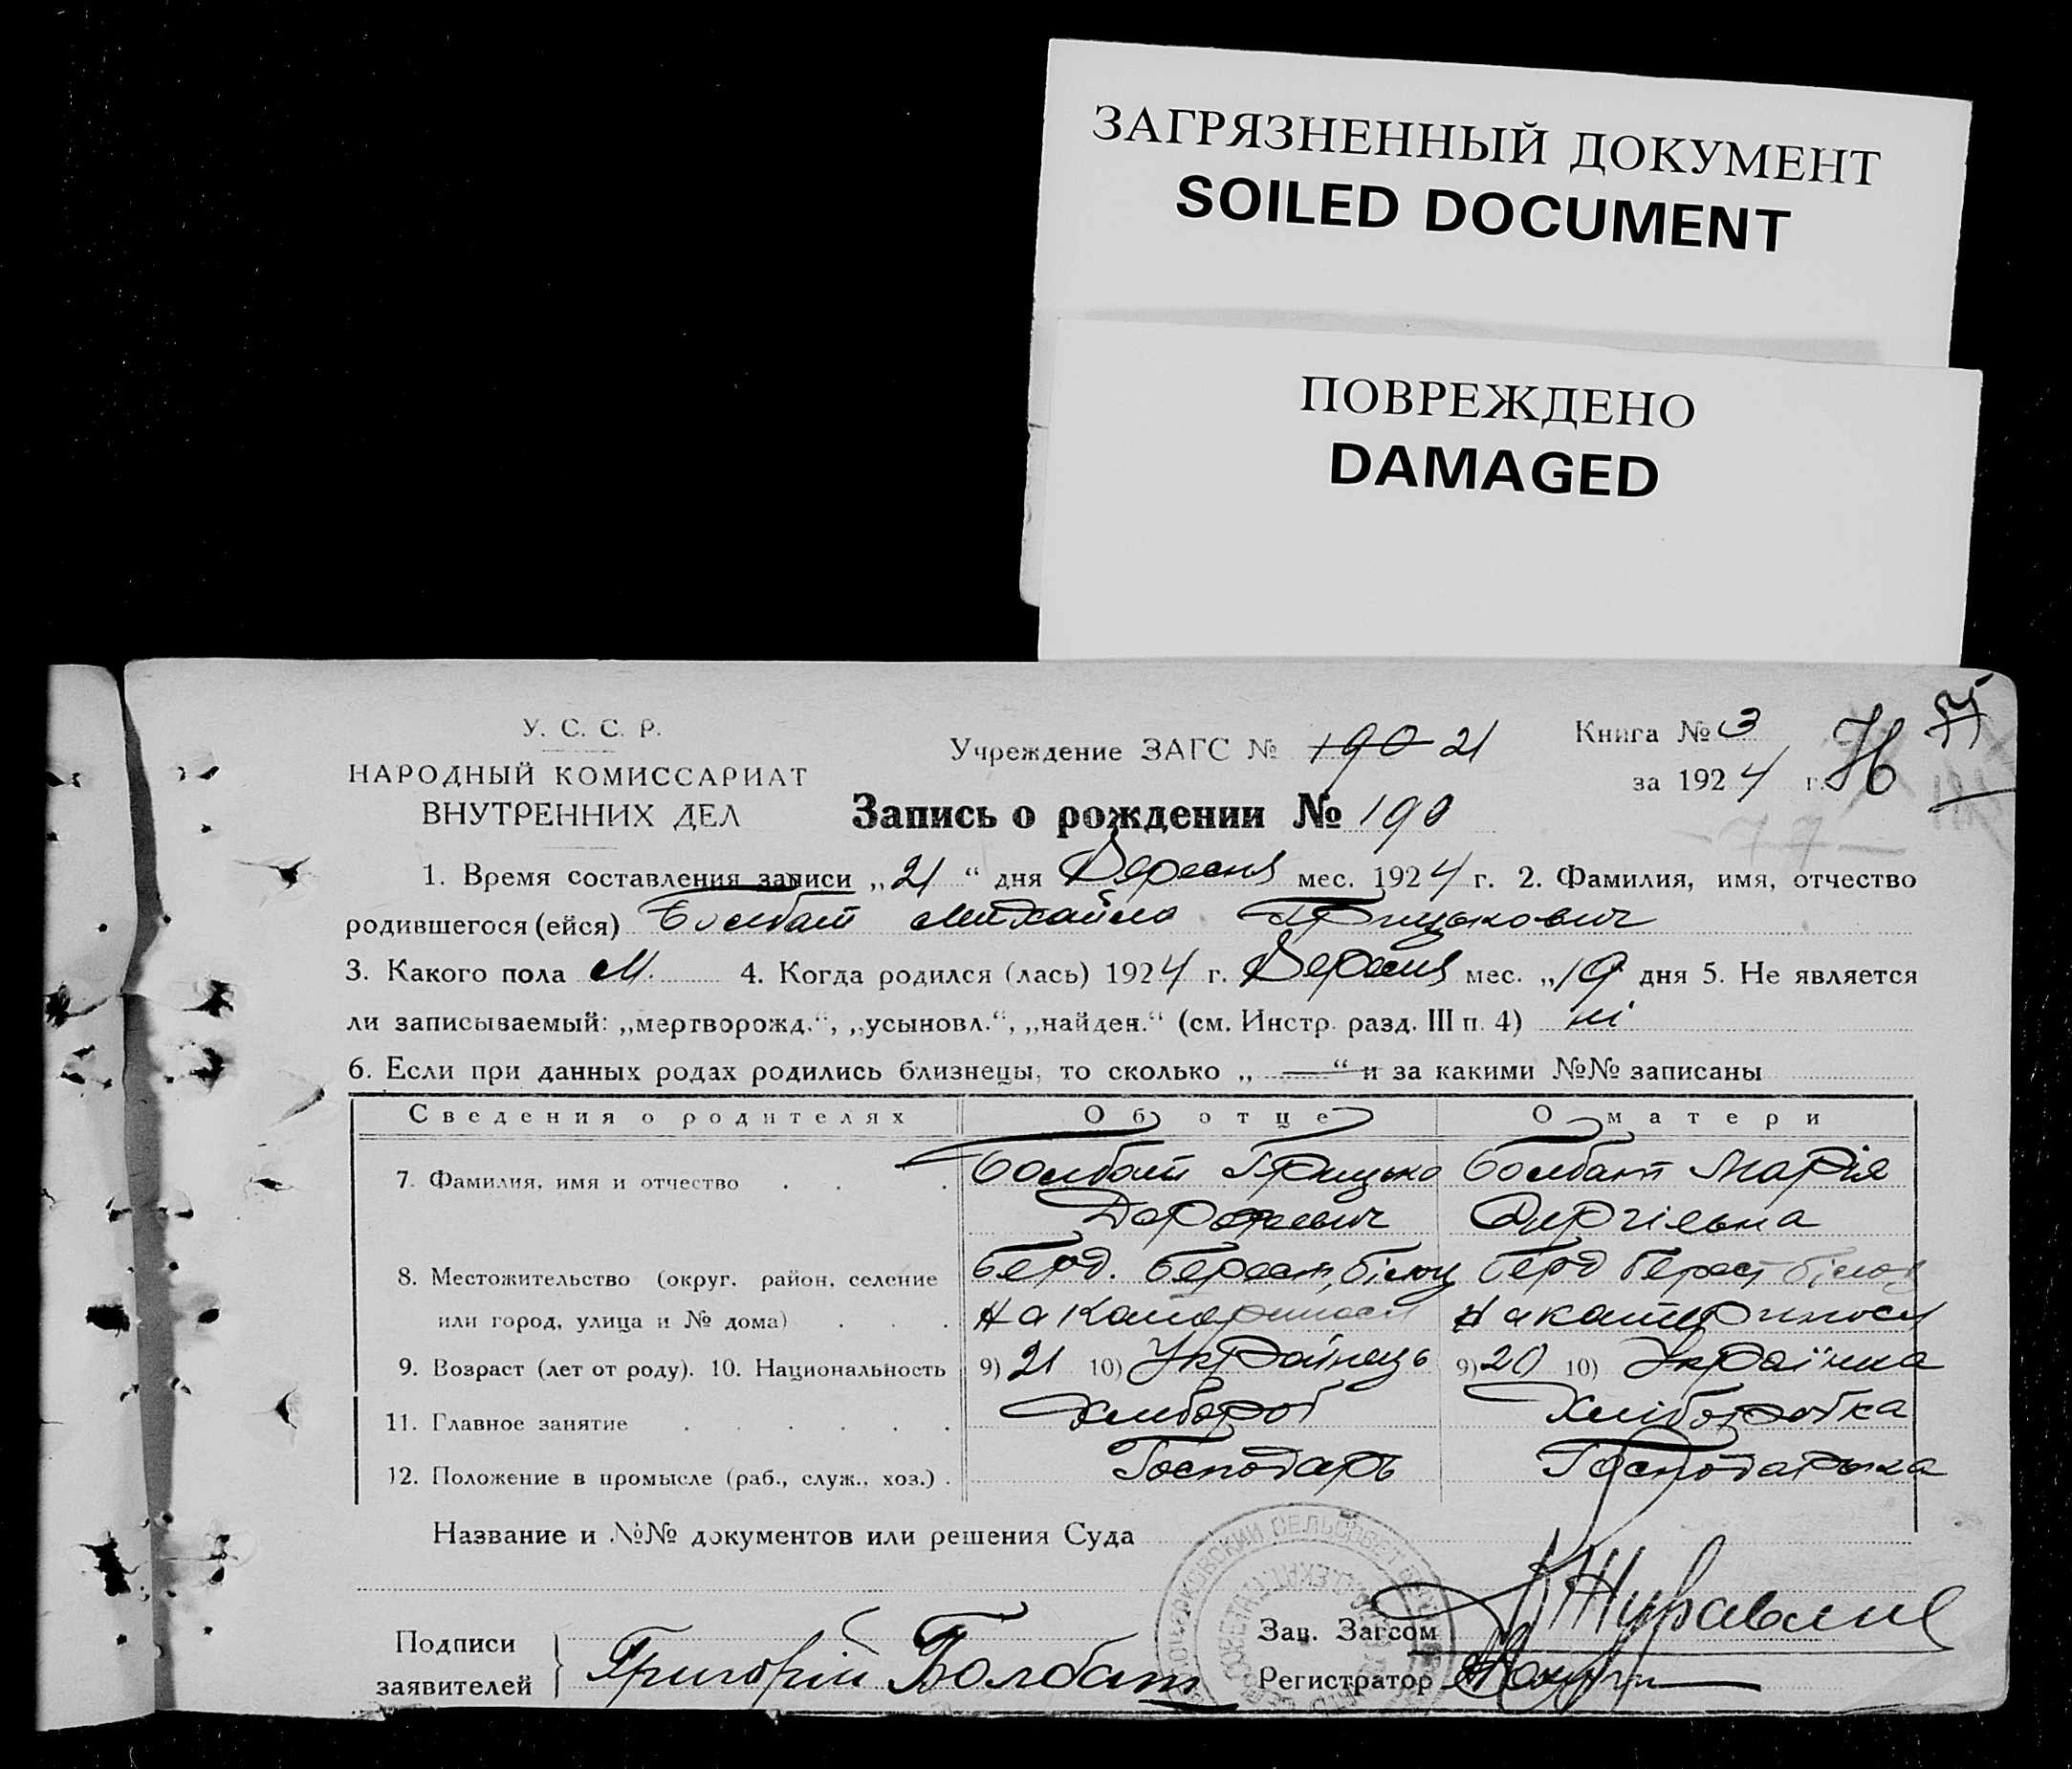 ЗАГРЯЗНЕННЫЙ ДОКУМЕНТ
SOILED DOCUMENT
ПОВРЕЖДЕНО
DAMAGED
У. С. С. Р.
НАРОДНЫЙ КОМИССАРИАТ
ВНУТРЕННИХ ДЕЛ
Учреждение ЗАГС № 190 21
Книга № 3
за 1924 г.
Запись о рождении № 190
1. Время составления записи „21“ дня Вересня мес. 1924 г. 2. Фамилия, имя, отчество
родившегося (ейся) Болбат Михайло Грицькович
3. Какого пола М. 4. Когда родился (лась) 1924 г. Вересня мес. „19 дня 5. Не является
ли записываемый: „мертворожд.“, „усыновл.“, „найден.“ (см. Инстр. разд. III п. 4) ні
6. Если при данных родах родились близнецы, то сколько „ — “ и за какими №№ записаны
Сведения о родителях Об отце О матери
7. Фамилия, имя и отчество Болбат Грицько Болбат Марія
8. Местожительство (округ, район, селение Берд. Берест. Берд Берест
или город, улица и № дома)
9. Возраст (лет от роду). 10. Национальность 9) 21 10) Українець 9) 20 10) Українка
11. Главное занятие Хлібороб Хліборобка
12. Положение в промысле (раб., служ., хоз.) Господарь Господарька
Название и №№ документов или решения Суда
Подписи
заявителей Григорій Болбат
Зав. Загсом
Регистратор